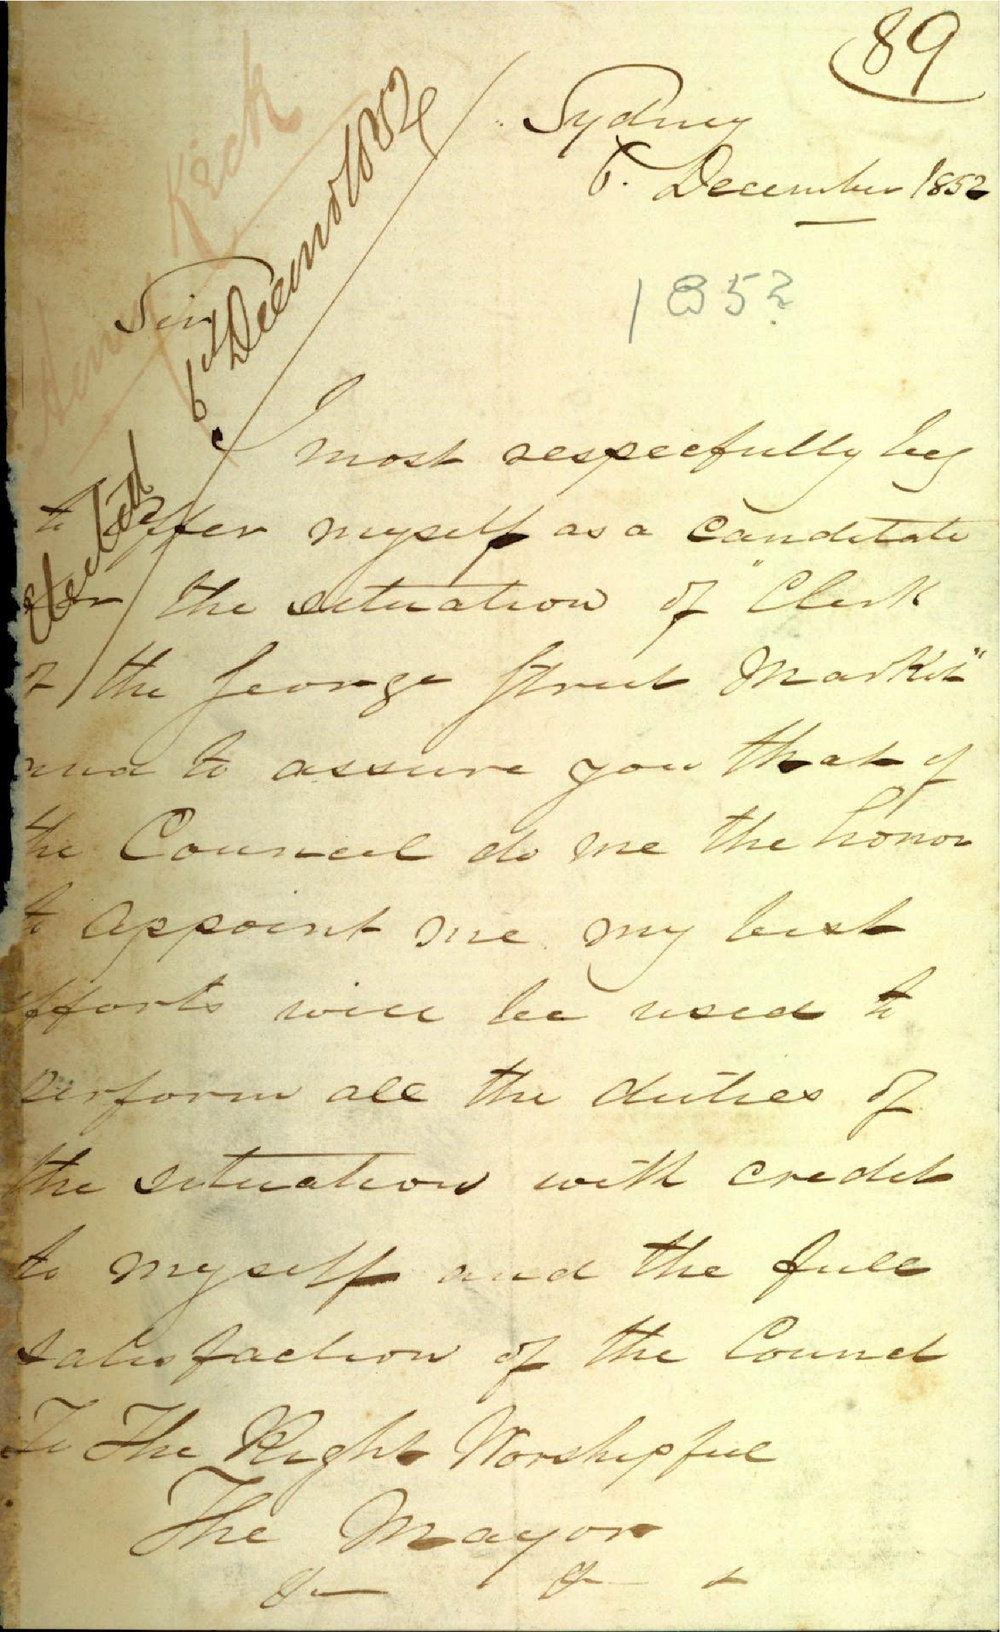 89
Sydney
6. December 1852
1852
Sir
Elected
6th December 1852
I most respecfully beg
to offer myself as a canditate
for the situation of "Clerk
of the George Street Market"
and to assure you that if
the Council do me the honor
to appoint me my best
efforts will be used to
perform all the duties of
the situation with credit
to myself and the full
satisfaction of the Council
To The Right Worshipful
The Mayor
&c &c